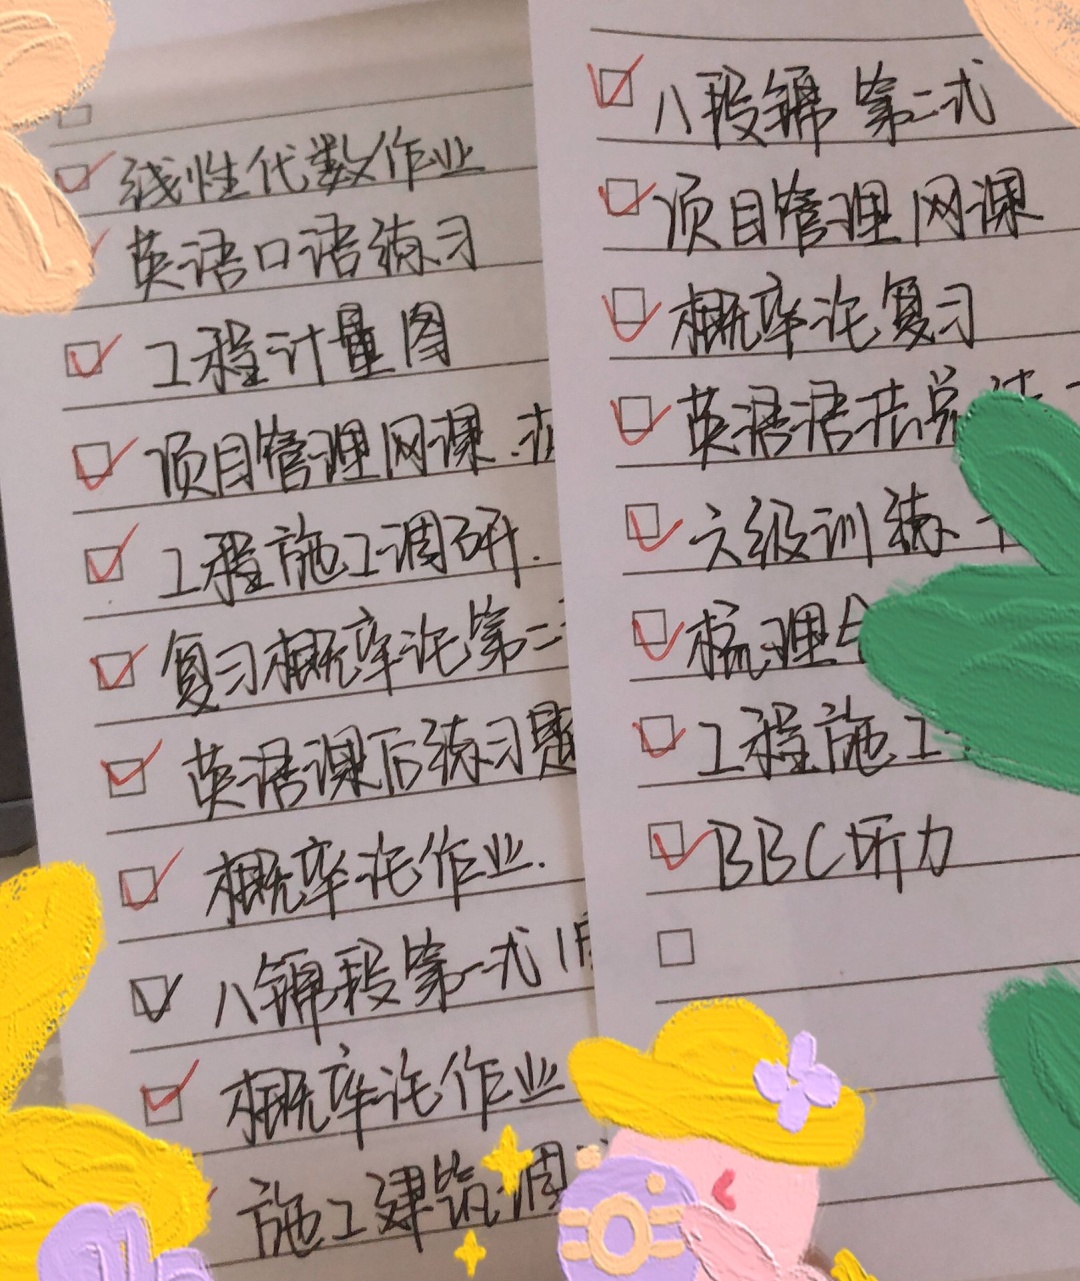 线性代数作业
英语口语练习
工程计量图
项目管理网课.
工程施工调研.
复习概率论第二
英语课后练习题
概率论作业.
八锦段第一式
概率论作业
施工建筑调
八段锦 第二式
项目管理网课
概率论复习
英语语法总结
六级训练
梳理
工程施工
BBC听力